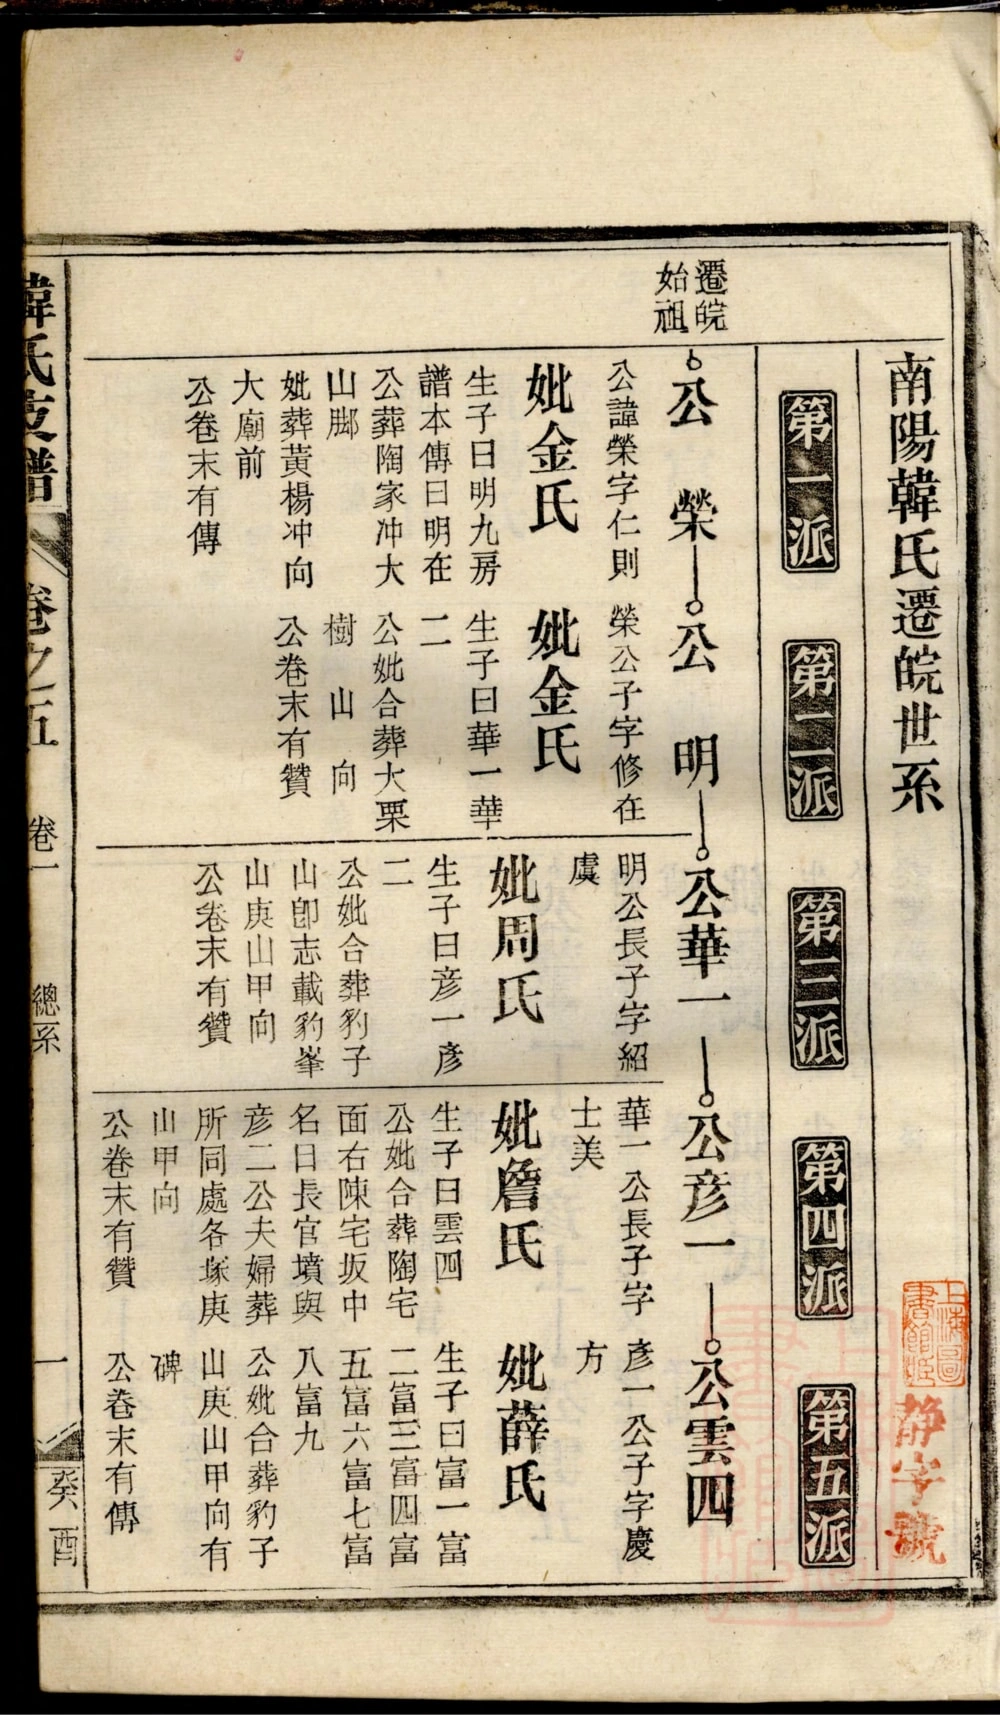 南陽韓氏遷皖世系
靜字號
上海圖書館藏
第一派
第二派
第三派
第四派
第五派
遷皖
始祖
公榮
公諱榮字仁則
妣金氏
生子曰明九房
譜本傳曰明在
公葬陶家冲大
山脚
妣葬黃楊冲向
大廟前
公卷末有傳
公明
榮公子字修在
妣金氏
生子曰華一華
二
公妣合葬大栗
樹山向
公卷末有贊
公華一
明公長子字紹
虞
妣周氏
生子曰彦一彦
二
公妣合葬豹子
山卽志載豹峯
山庚山甲向
公卷末有贊
公彦一
華一公長子字
士美
妣詹氏
生子曰雲四
公妣合葬陶宅
面右陳宅坂中
名曰長官墳與
彦二公夫婦葬
所同處各塚庚
山甲向
公卷末有贊
公雲四
彦一公子字慶
方
妣薛氏
生子曰富一富
二富三富四富
五富六富七富
八富九
公妣合葬豹子
山庚山甲向有
碑
公卷末有傳
韓氏支譜
卷之五
卷一
總系
一
癸酉